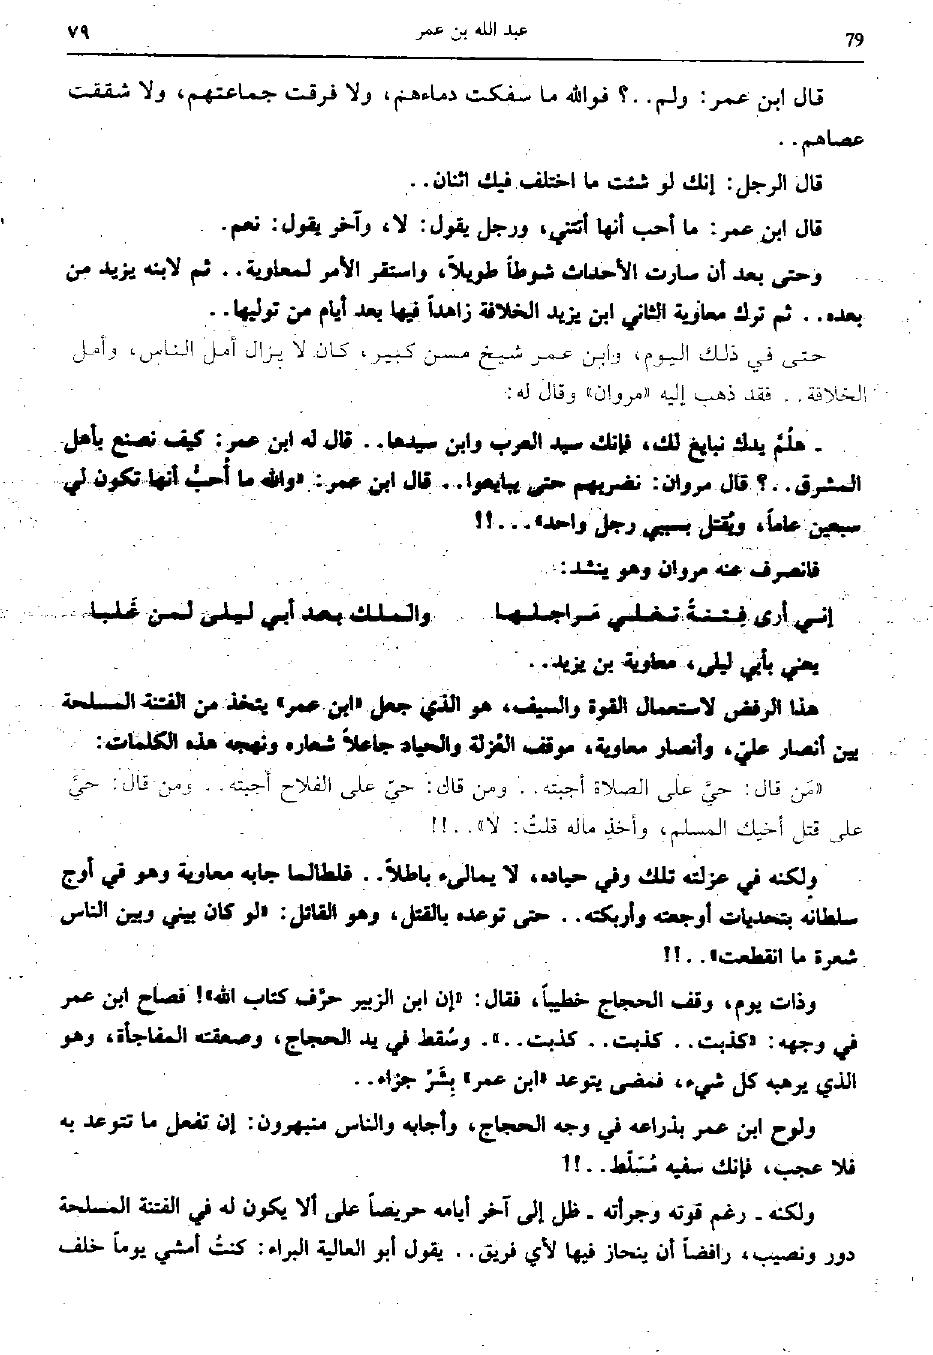 79 عبد الله بن عمر ٧٩
قال ابن عمر: ولم..؟ فوالله ما سفكت دماءهم، ولا فرقت جماعتهم، ولا شققت
عصاهم..
قال الرجل: إنك لو شئت ما اختلف فيك اثنان..
قال ابن عمر: ما أحب أنها أتتني، ورجل يقول: لا، وآخر يقول: نعم.
وحتى بعد أن سارت الأحداث شوطاً طويلاً، واستقر الأمر لمعاوية.. ثم لابنه يزيد من
بعده.. ثم ترك معاوية الثاني ابن يزيد الخلافة زاهداً فيها بعد أيام من توليها..
حتى في ذلك اليوم، وابن عمر شيخ مسن كبير، كان لا يزال أمل الناس، وأمل
الخلافة.. فقد ذهب إليه «مروان» وقال له:
ـ هلُمَّ يدك نبايع لك، فإنك سيد العرب وابن سيدها.. قال له ابن عمر: كيف نصنع بأهل
المشرق..؟ قال مروان: نضربهم حتى يبايعوا.. قال ابن عمر: «والله ما أُحبُّ أنها تكون لي
سبعين عاماً، ويُقتل بسببي رجل واحد»...!!
فانصرف عنه مروان وهو ينشد:
إنـي أرى فـتـنـةً تـغـلـي مَـراجـلـهـا والـمـلـك بـعـد أبـي لـيـلـى لـمـن غَـلـبـا
يعني بأبي ليلى، معاوية بن يزيد..
هذا الرفض لاستعمال القوة والسيف، هو الذي جعل «ابن عمر» يتخذ من الفتنة المسلحة
بين أنصار عليّ، وأنصار معاوية، موقف العُزلة والحياد جاعلاً شعاره ونهجه هذه الكلمات:
«مَن قال: حيَّ على الصلاة أجبته.. ومن قال: حيّ على الفلاح أجبته.. ومن قال: حيَّ
على قتل أخيك المسلم، وأخذِ ماله قلتُ: لا»..!!
ولكنه في عزلته تلك وفي حياده، لا يمالىء باطلاً.. فلطالما جابه معاوية وهو في أوج
سلطانه بتحديات أوجعته وأربكته.. حتى توعده بالقتل، وهو القائل: «لو كان بيني وبين الناس
شعرة ما انقطعت»..!!
وذات يوم، وقف الحجاج خطيباً، فقال: «إن ابن الزبير حرَّف كتاب الله»! فصاح ابن عمر
في وجهه: «كذبت.. كذبت.. كذبت..». وسُقط في يد الحجاج، وصعقته المفاجأة، وهو
الذي يرهبه كل شيء، فمضى يتوعد «ابن عمر» بِشَرِّ جزاء..
ولوح ابن عمر بذراعه في وجه الحجاج، وأجابه والناس منبهرون: إن تفعل ما تتوعد به
فلا عجب، فإنك سفيه مُسَلَّط..!!
ولكنه ـ رغم قوته وجرأته ـ ظل إلى آخر أيامه حريصاً على ألا يكون له في الفتنة المسلحة
دور ونصيب، رافضاً أن ينحاز فيها لأي فريق.. يقول أبو العالية البراء: كنتُ أمشي يوماً خلف